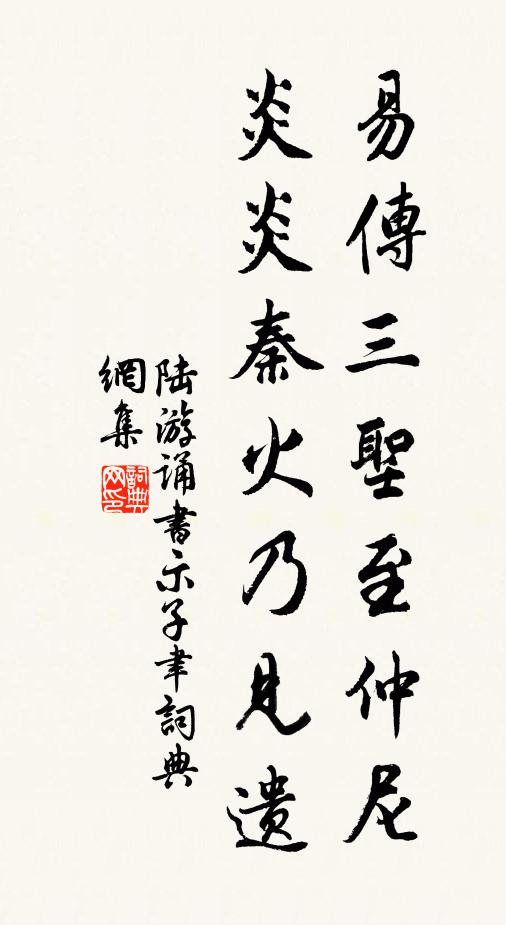 易傳三聖至仲尼
炎炎秦火乃見遺
陆游诵書示子聿詞典
網集
詞典网印